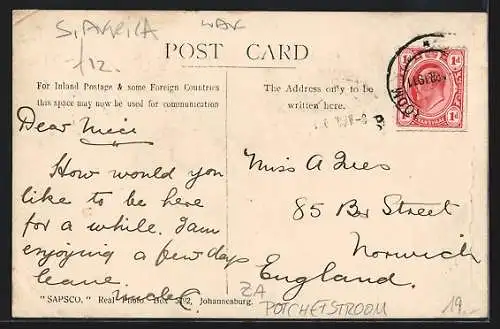 S. AFRICA WAR
/12.
POST CARD
For Inland Postage & some Foreign Countries
this space may now be used for communication
The Address only to be
written here.
1d 1d
TRANSVAAL
OOM
Dear Niece
How would you
like to be here
for a while. I am
enjoying a few days
leave.
Uncle C.
Miss A Lees
85 Ber Street
Norwich
England.
"SAPSCO." Real Photo Box 5792, Johannesburg.
ZA
POTCHEFSTROOM
19.-